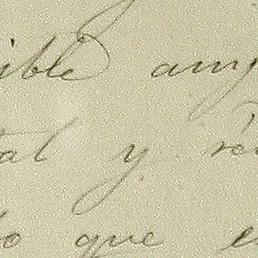 ible am
tal y
do que e